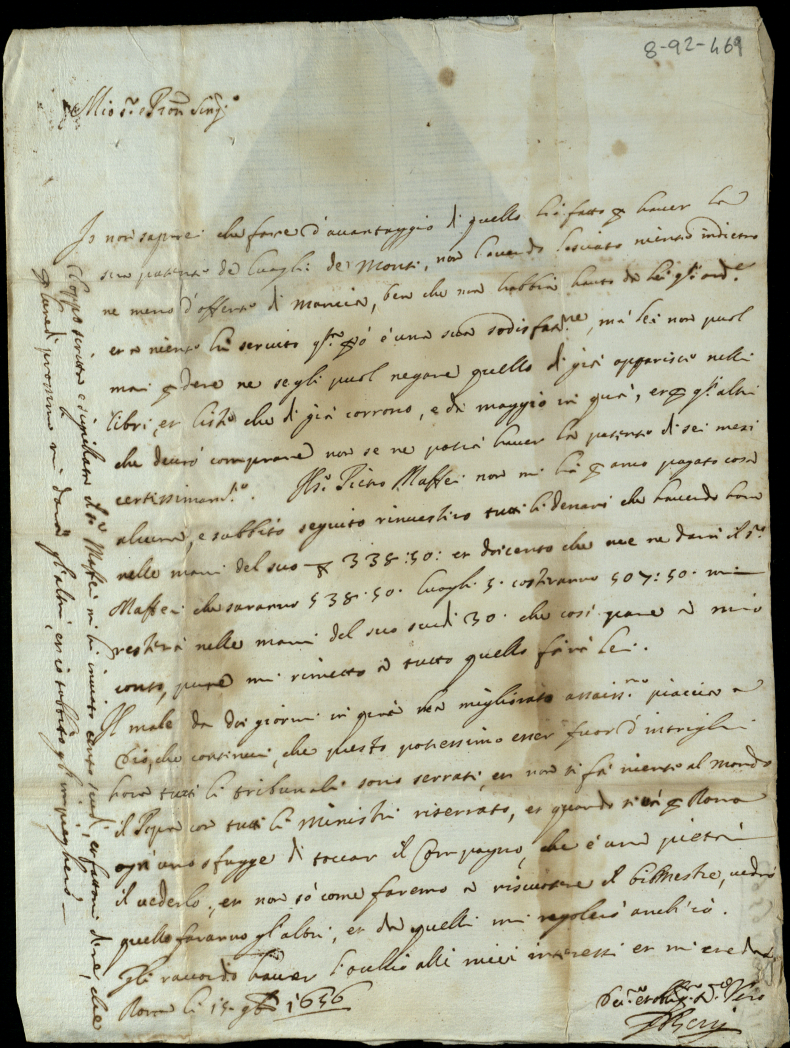 8-92-469
Mio s.r e Pron Sing.o
Io non saprei che fare d'avantaggio di quello hò fatto p haver la
sua patente de luoghi de Monti, non havendo lasciato niente indietro
ne meno d'offerte di mancia, ben che non habbia hauto da lei
et a niente hà servito è una sua sodisfat.ne, mà lei non puol
mai dere ne se gli puol negare quello di già apparisce nelli
libri, et liste che di già corrono, e da maggio in quà, et p gl'altri
che dovrà comprare non se ne potrà haver la patente di sei mesi
certissimam.te. Pietro Maffei non mi hà p anco pagato cosa
alcuna, e subbito seguito rinvestirò tutti li denari che havendo hora
nelle mani del suo 338:50: et doicento che me ne darà il s.r
Maffei che saranno 538:50. luoghi 5. costaranno 507:50. mi
resterà nelle mani del suo scudi 30. che così pare à mio
conto, pure mi rimetto à tutto quello farà lei.
Il male da doi giorni in quà hà migliorato assaiss.o piaccia a
Dio, che continui, che presto potessimo esser fuor d'intrighi
hora tutti li tribunali sono serrati, et non si fà niente al mondo
il Papa con tutti li Ministri riserrato, et quando si và p Roma
ogn'uno sfugge di toccar il Compagno, che è una pietà
il vederlo, et non sò come faremo à riscuotere il bimestre, vedrò
quello faranno gl'altri, et da quelli mi regolerò anch'io.
Gli raccordo haver l'occhio alli miei interessi et mi creda
Roma li 15 9bre 1656
Vero
Doppo scritta e sigillata il s.r Maffei mi hà inviato cento scudi, et fattomi dire, che
p lunedì prossimo mi darà gl'altri, et io subbito gl'impiegherò